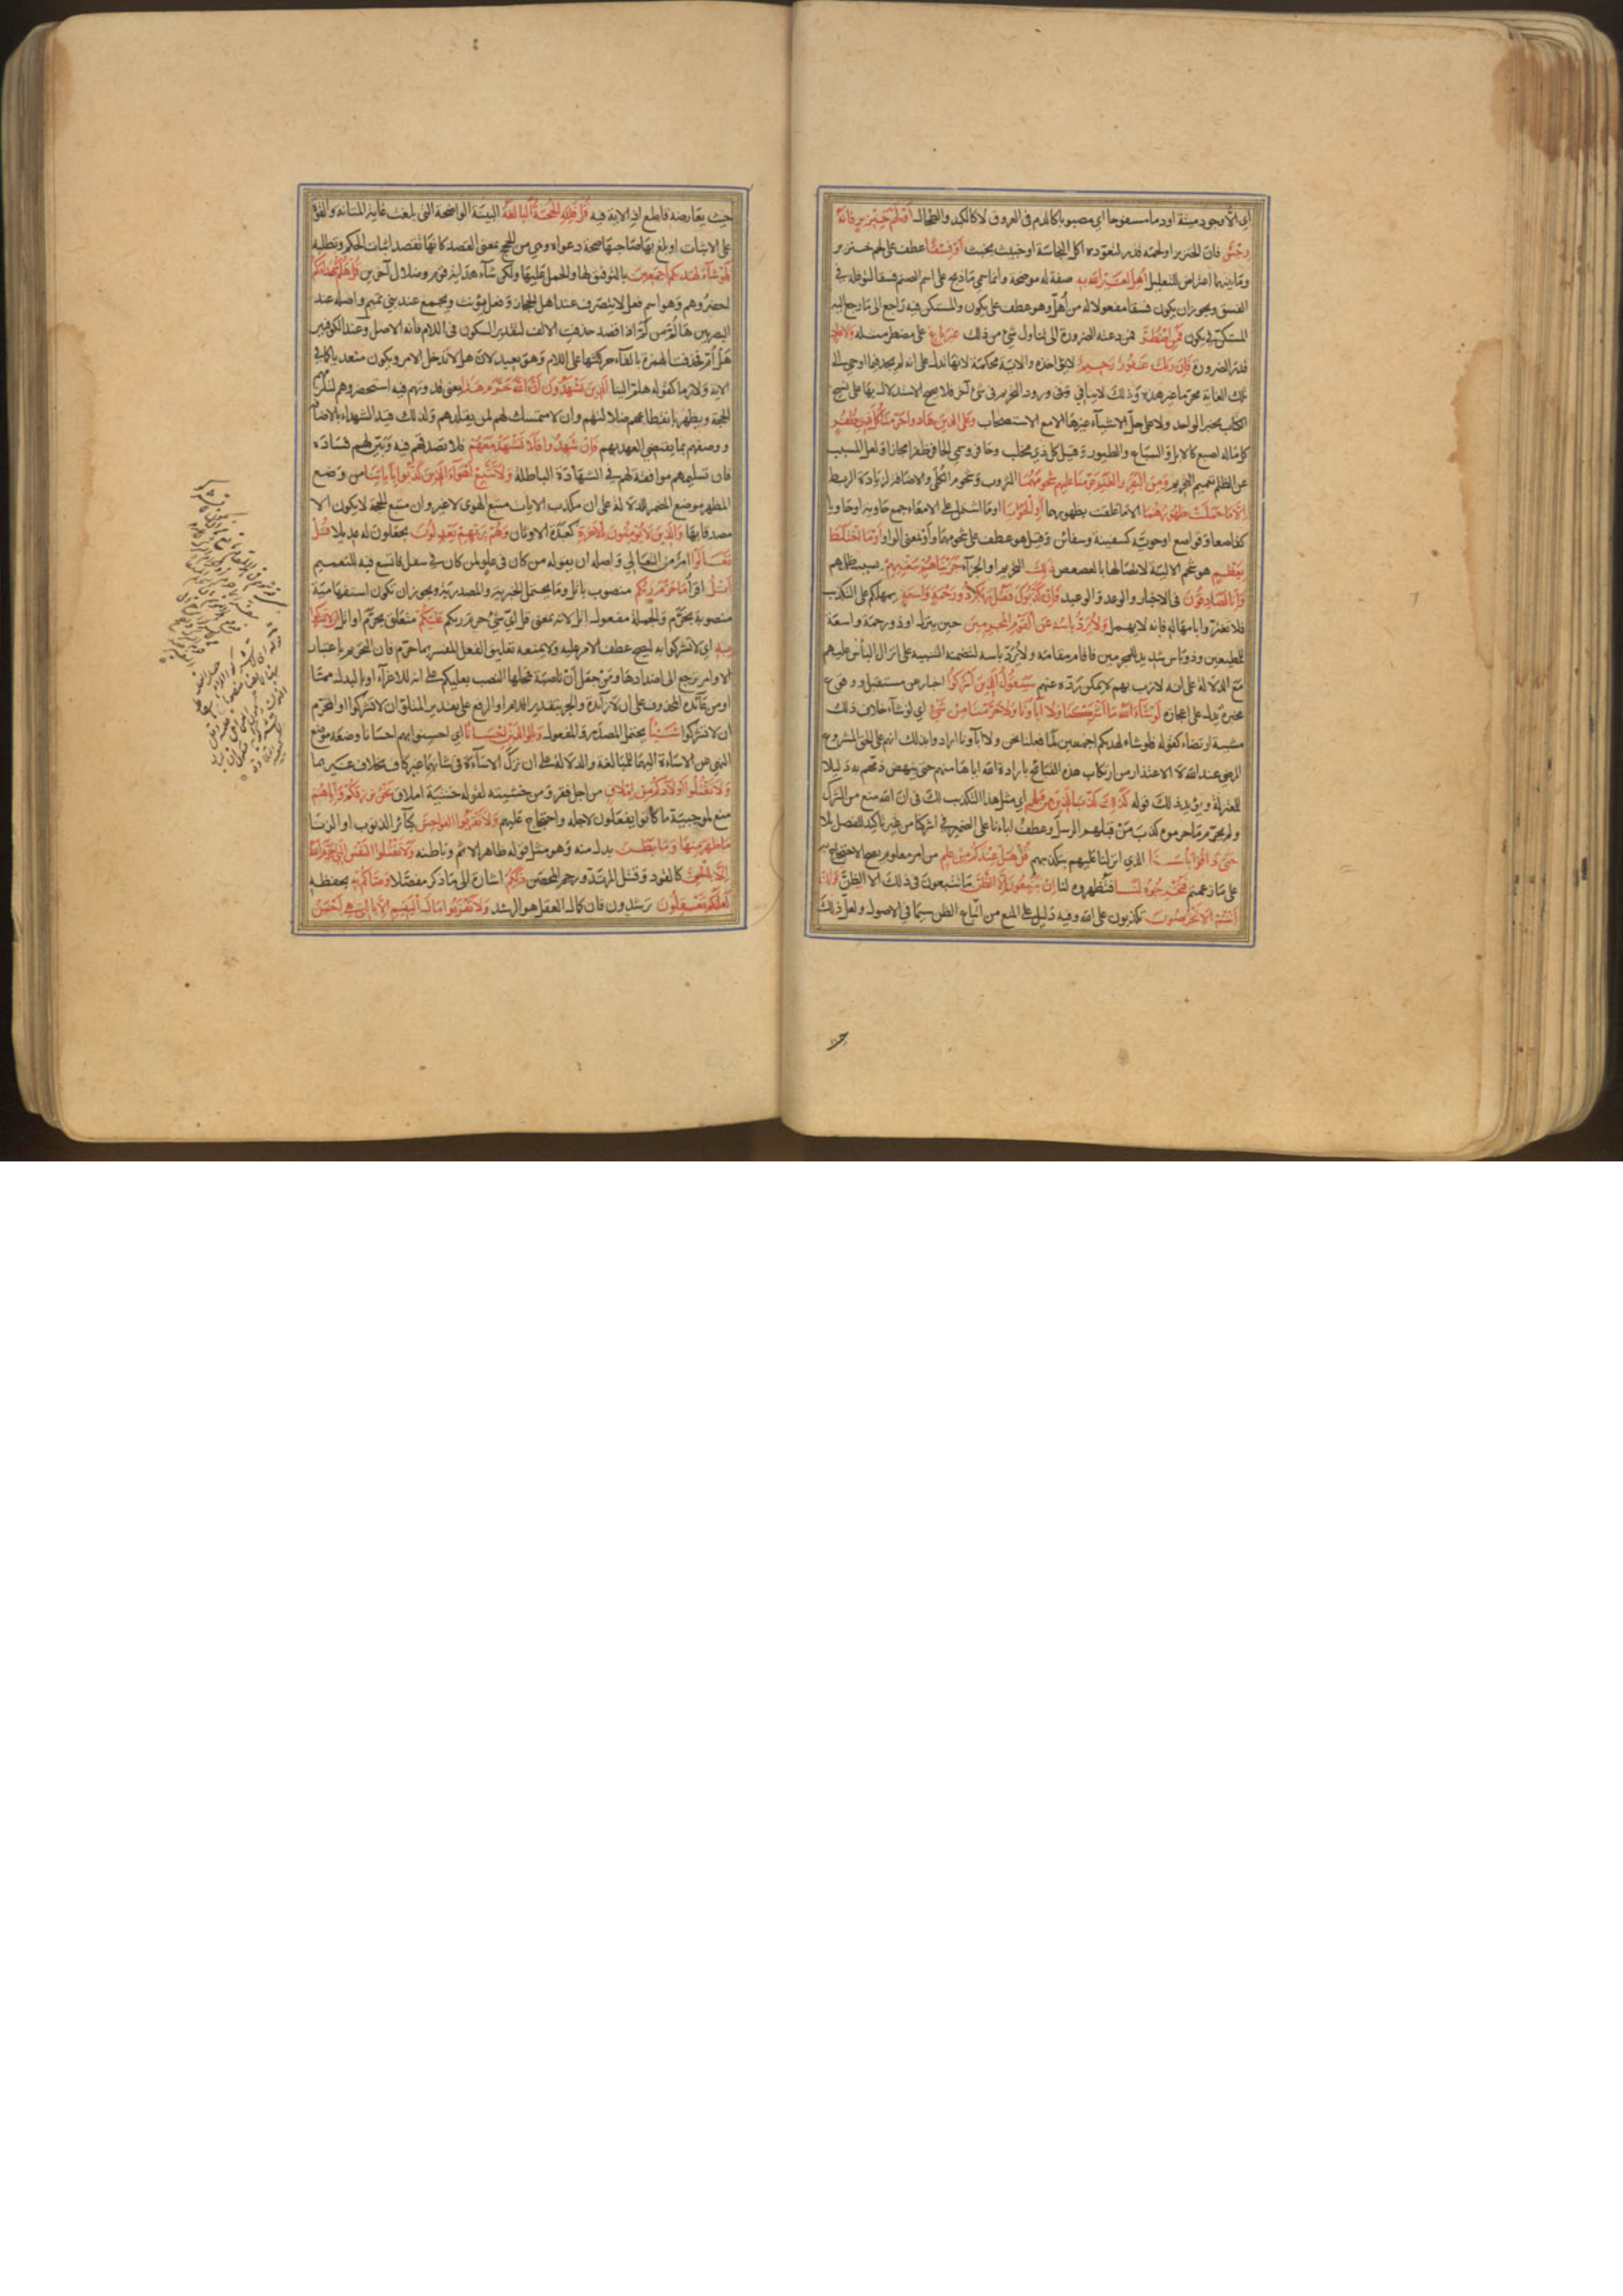 اى الا وجود ميتة او دما مسفوحا اى مصبوبا كالدم فى العروق لا كالكبد والطحال أو لحم خنزير فانه
رجس فان الخنزير او لحمه قذر لتعوده اكل النجاسة او خبيث مخبث أو فسقا عطف على لحم خنزير
وما بينهما اعتراض للتعليل أهل لغير الله به صفة له موضحة وانما سمى ما ذبح على اسم الصنم فسقا لتوغله فى
الفسق ويجوز ان يكون فسقا مفعولا له من أهل وهو عطف على يكون والمستكن فيه راجع الى ما رجع اليه
المستكن فى يكون فمن اضطر فمن دعته الضرورة الى تناول شئ من ذلك غير باغ على مضطر مثله ولا عاد
قدر الضرورة فان ربك غفور رحيم لا يؤاخذه والاية محكمة لانها تدل على انه لم يجد فيما اوحى الى
تلك الغاية محرما غير هذه وذلك لا ينافى ورود التحريم فى شئ آخر فلا يصح الاستدلال بها على نسخ
الكتاب بخبر الواحد ولا على حل الاشياء غيرها الا مع الاستصحاب وعلى الذين هادوا حرمنا كل ذى ظفر
كل ماله اصبع كالابل والسباع والطيور وقيل كل ذى مخلب وحافر وسمى الحافر ظفرا مجازا ولعل المسبب
عن الظلم تعميم التحريم ومن البقر والغنم حرمنا عليهم شحومهما الثروب وشحوم الكلى والاضافة لزيادة الربط
الا ما حملت ظهورهما الا ما علقت بظهورهما أو الحوايا او ما اشتمل على الامعاء جمع حاوية او حاويا
كقاصعا وقواصع او حوية كسفينة وسفائن وقيل هو عطف على شحومهما وأو بمعنى الواو أو ما اختلط
بعظم هو شحم الالية لاتصالها بالعصعص ذلك التحريم او الجزاء جزيناهم ببغيهم بسبب ظلمهم
وانا لصادقون فى الاخبار والوعد والوعيد فان كذبوك فقل ربكم ذو رحمة واسعة يمهلكم على التكذيب
فلا تغتروا بامهاله فانه لا يهمل ولا يرد باسه عن القوم المجرمين حين ينزل او ذو رحمة واسعة
للمطيعين وذو باس شديد للمجرمين فاقام مقامه ولا يرد باسه لتضمنه التنبيه على انزال الباس عليهم
مع الدلالة على انه لازب بهم لا يمكن رده عنهم سيقول الذين اشركوا اخبار عن مستقبل ووقوع
مخبره يدل على اعجازه لو شاء الله ما اشركنا ولا آباؤنا ولا حرمنا من شئ اى لو شاء خلاف ذلك
مشيئة ارتضاء كقوله فلو شاء لهديكم اجمعين لما فعلنا نحن ولا آباؤنا ارادوا بذلك انهم على الحق المشروع
المرضى عند الله لا الاعتذار من ارتكاب هذه القبائح بارادة الله اياها منهم حتى ينهض ذمهم به دليلا
للمعتزلة ويؤيد ذلك قوله كذلك كذب الذين من قبلهم اى مثل هذا التكذيب لك فى ان الله منع من الشرك
ولم يحرم ما حرموه كذب من قبلهم الرسل وعطف اباؤنا على الضمير فى اشركنا من غير تاكيد للفصل بلا
حتى ذاقوا باسنا الذى انزلنا عليهم بتكذيبهم قل هل عندكم من علم من امر معلوم يصح الاحتجاج به
على ما زعمتم فتخرجوه لنا فتظهروه لنا ان تتبعون الا الظن ما تتبعون فى ذلك الا الظن وان
أنتم الا تخرصون تكذبون على الله وفيه دليل على المنع من اتباع الظن سيما فى الاصول ولعل ذلك
حيث يعارضه قاطع اذ الاية فيه قل فلله الحجة البالغة البينة الواضحة التى بلغت غاية المتانة والقوة
على الاثبات او بلغ بها صاحبها صحة دعواه وهى من الحج بمعنى القصد كانها تقصد اثبات الحكم وتطلبه
فلو شاء لهديكم اجمعين بالتوفيق لها والحمل عليها ولكن شاء هداية قوم وضلال آخرين قل هلم شهداءكم
احضروهم وهو اسم فعل لا يتصرف عند اهل الحجاز وفعل يؤنث ويجمع عند بنى تميم واصله عند
البصريين ها لم من لم اذا قصد حذفت الالف لتقدير السكون فى اللام فانه الاصل وعند الكوفيين
هل أم فحذفت الهمزة بالقاء حركتها على اللام وهو بعيد لان هل لا تدخل الامر ويكون متعديا كما فى
الاية ولازما كقوله هلم الينا الذين يشهدون أن الله حرم هذا يعنى قدوتهم فيه استحضروهم لتلزمهم
الحجة ويظهر بانقطاعهم ضلالتهم وان لا متمسك لهم لمن يقلدهم ولذلك قيد الشهداء بالاضافة
ووصفهم بما يقتضى العهد بهم فان شهدوا فلا تشهد معهم فلا تصدقهم فيه وبين لهم فساده
فان تسليمهم موافقة لهم فى الشهادة الباطلة ولا تتبع اهواء الذين كذبوا باياتنا من وضع
المظهر موضع المضمر للدلالة على ان مكذب الايات متبع الهوى لا غير وان متبع الحجة لا يكون الا
مصدقا بها والذين لا يؤمنون بالاخرة كعبدة الاوثان وهم بربهم يعدلون يجعلون له عديلا قل
تعالوا امر من التعالى واصله ان يقوله من كان فى علو لمن كان فى سفل فاتسع فيه للتعميم
أتل اقرأ ما حرم ربكم منصوب باتل وما يحتمل الخبرية والمصدرية ويجوز ان تكون استفهامية
منصوبة بحرم والجملة مفعول اتل لانه بمعنى قل اى شئ حرم ربكم عليكم متعلق بحرم او اتل الا تشركوا
به اى لا تشركوا به ليصح عطف الامر عليه ولا يمنعه تعليق الفعل المفسر بما حرم فان التحريم باعتبار
الاوامر يرجع الى اضدادها ومن جعل أن ناصبة فمحلها النصب بعليكم على انه للاغراء او بالبدل مما
او من عائده المحذوف على ان لا زائدة والجر بتقدير اللام او الرفع على تقدير المتلو ان لا تشركوا او المحرم
ان لا تشركوا شيئا يحتمل المصدر والمفعول وبالوالدين احسانا اى احسنوا بهم احسانا وضعه موضع
النهى عن الاساءة اليهما للمبالغة والدلالة على ان ترك الاساءة فى شانهما غير كاف بخلاف غيرهما
ولا تقتلوا أولادكم من املاق من اجل فقر ومن خشيته لقوله خشية املاق نحن نرزقكم واياهم
منع لموجبية ما كانوا يفعلون لاجله واحتجاج عليهم ولا تقربوا الفواحش كبائر الذنوب او الزنا
ما ظهر منها وما بطن بدل منه وهو مثل قوله ظاهر الاثم وباطنه ولا تقتلوا النفس التى حرم الله
الا بالحق كالقود وقتل المرتد ورجم المحصن ذلكم اشارة الى ما ذكر مفصلا وصاكم به بحفظه
لعلكم تعقلون ترشدون فان كمال العقل هو الرشد ولا تقربوا مال اليتيم الا بالتى هى أحسن